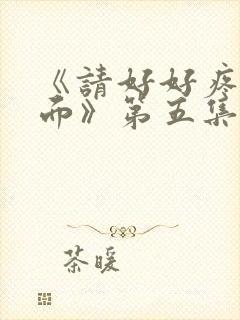 《請好好疼
而》第五集
茶暖